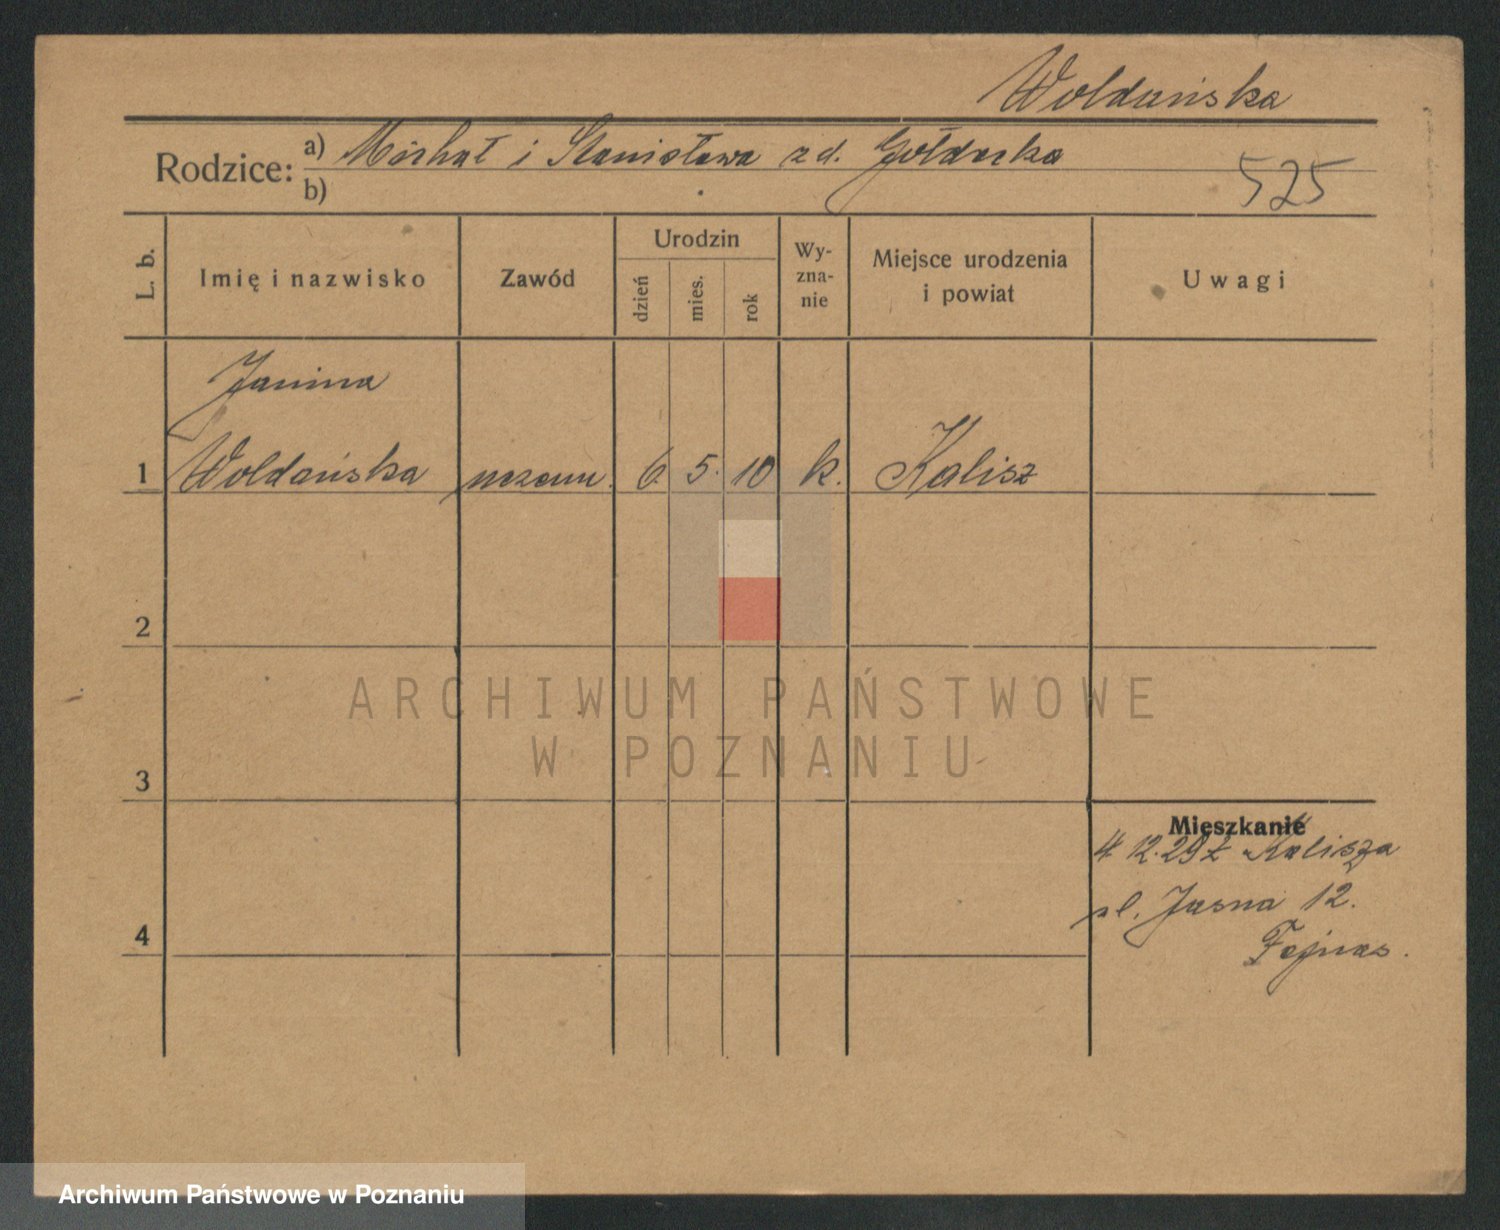 Woldańska
Rodzice: a) Michał i Stanisława z d. Gołdecka
b)
525
L. b.
Imię i nazwisko
Zawód
Urodzin
dzień
mies.
rok
Wy-
zna-
nie
Miejsce urodzenia
i powiat
Uwagi
Janina
1 Woldańska uczenn. 6. 5. 10 k. Kalisz
2
ARCHIWUM PAŃSTWOWE
W POZNANIU
3
Mieszkanie
4 12.29 z Kalisza
4
ul. Jasna 12.
Archiwum Państwowe w Poznaniu